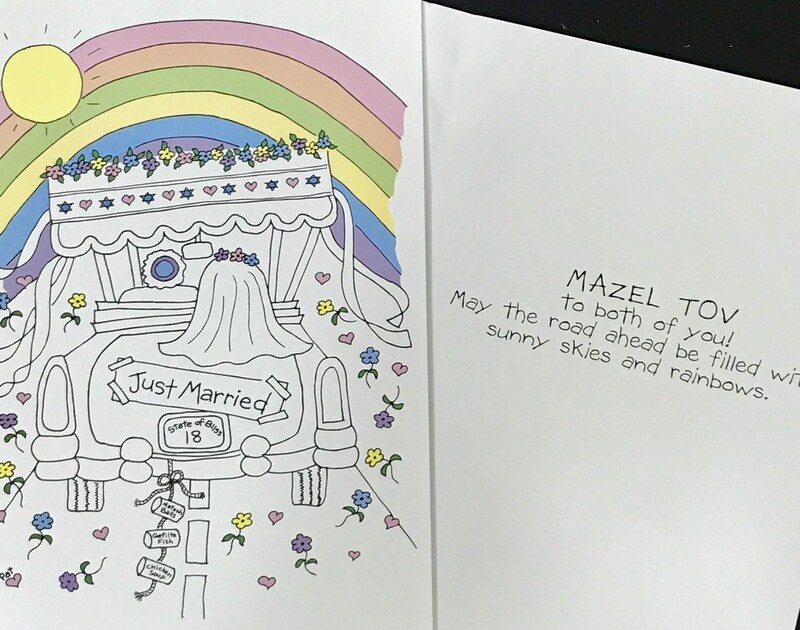 Just Married
State of Bliss
18
Matzah
Balls
Gefilte
Fish
Chicken
Soup
MAZEL TOV
to both of you!
May the road ahead be filled wit
sunny skies and rainbows.